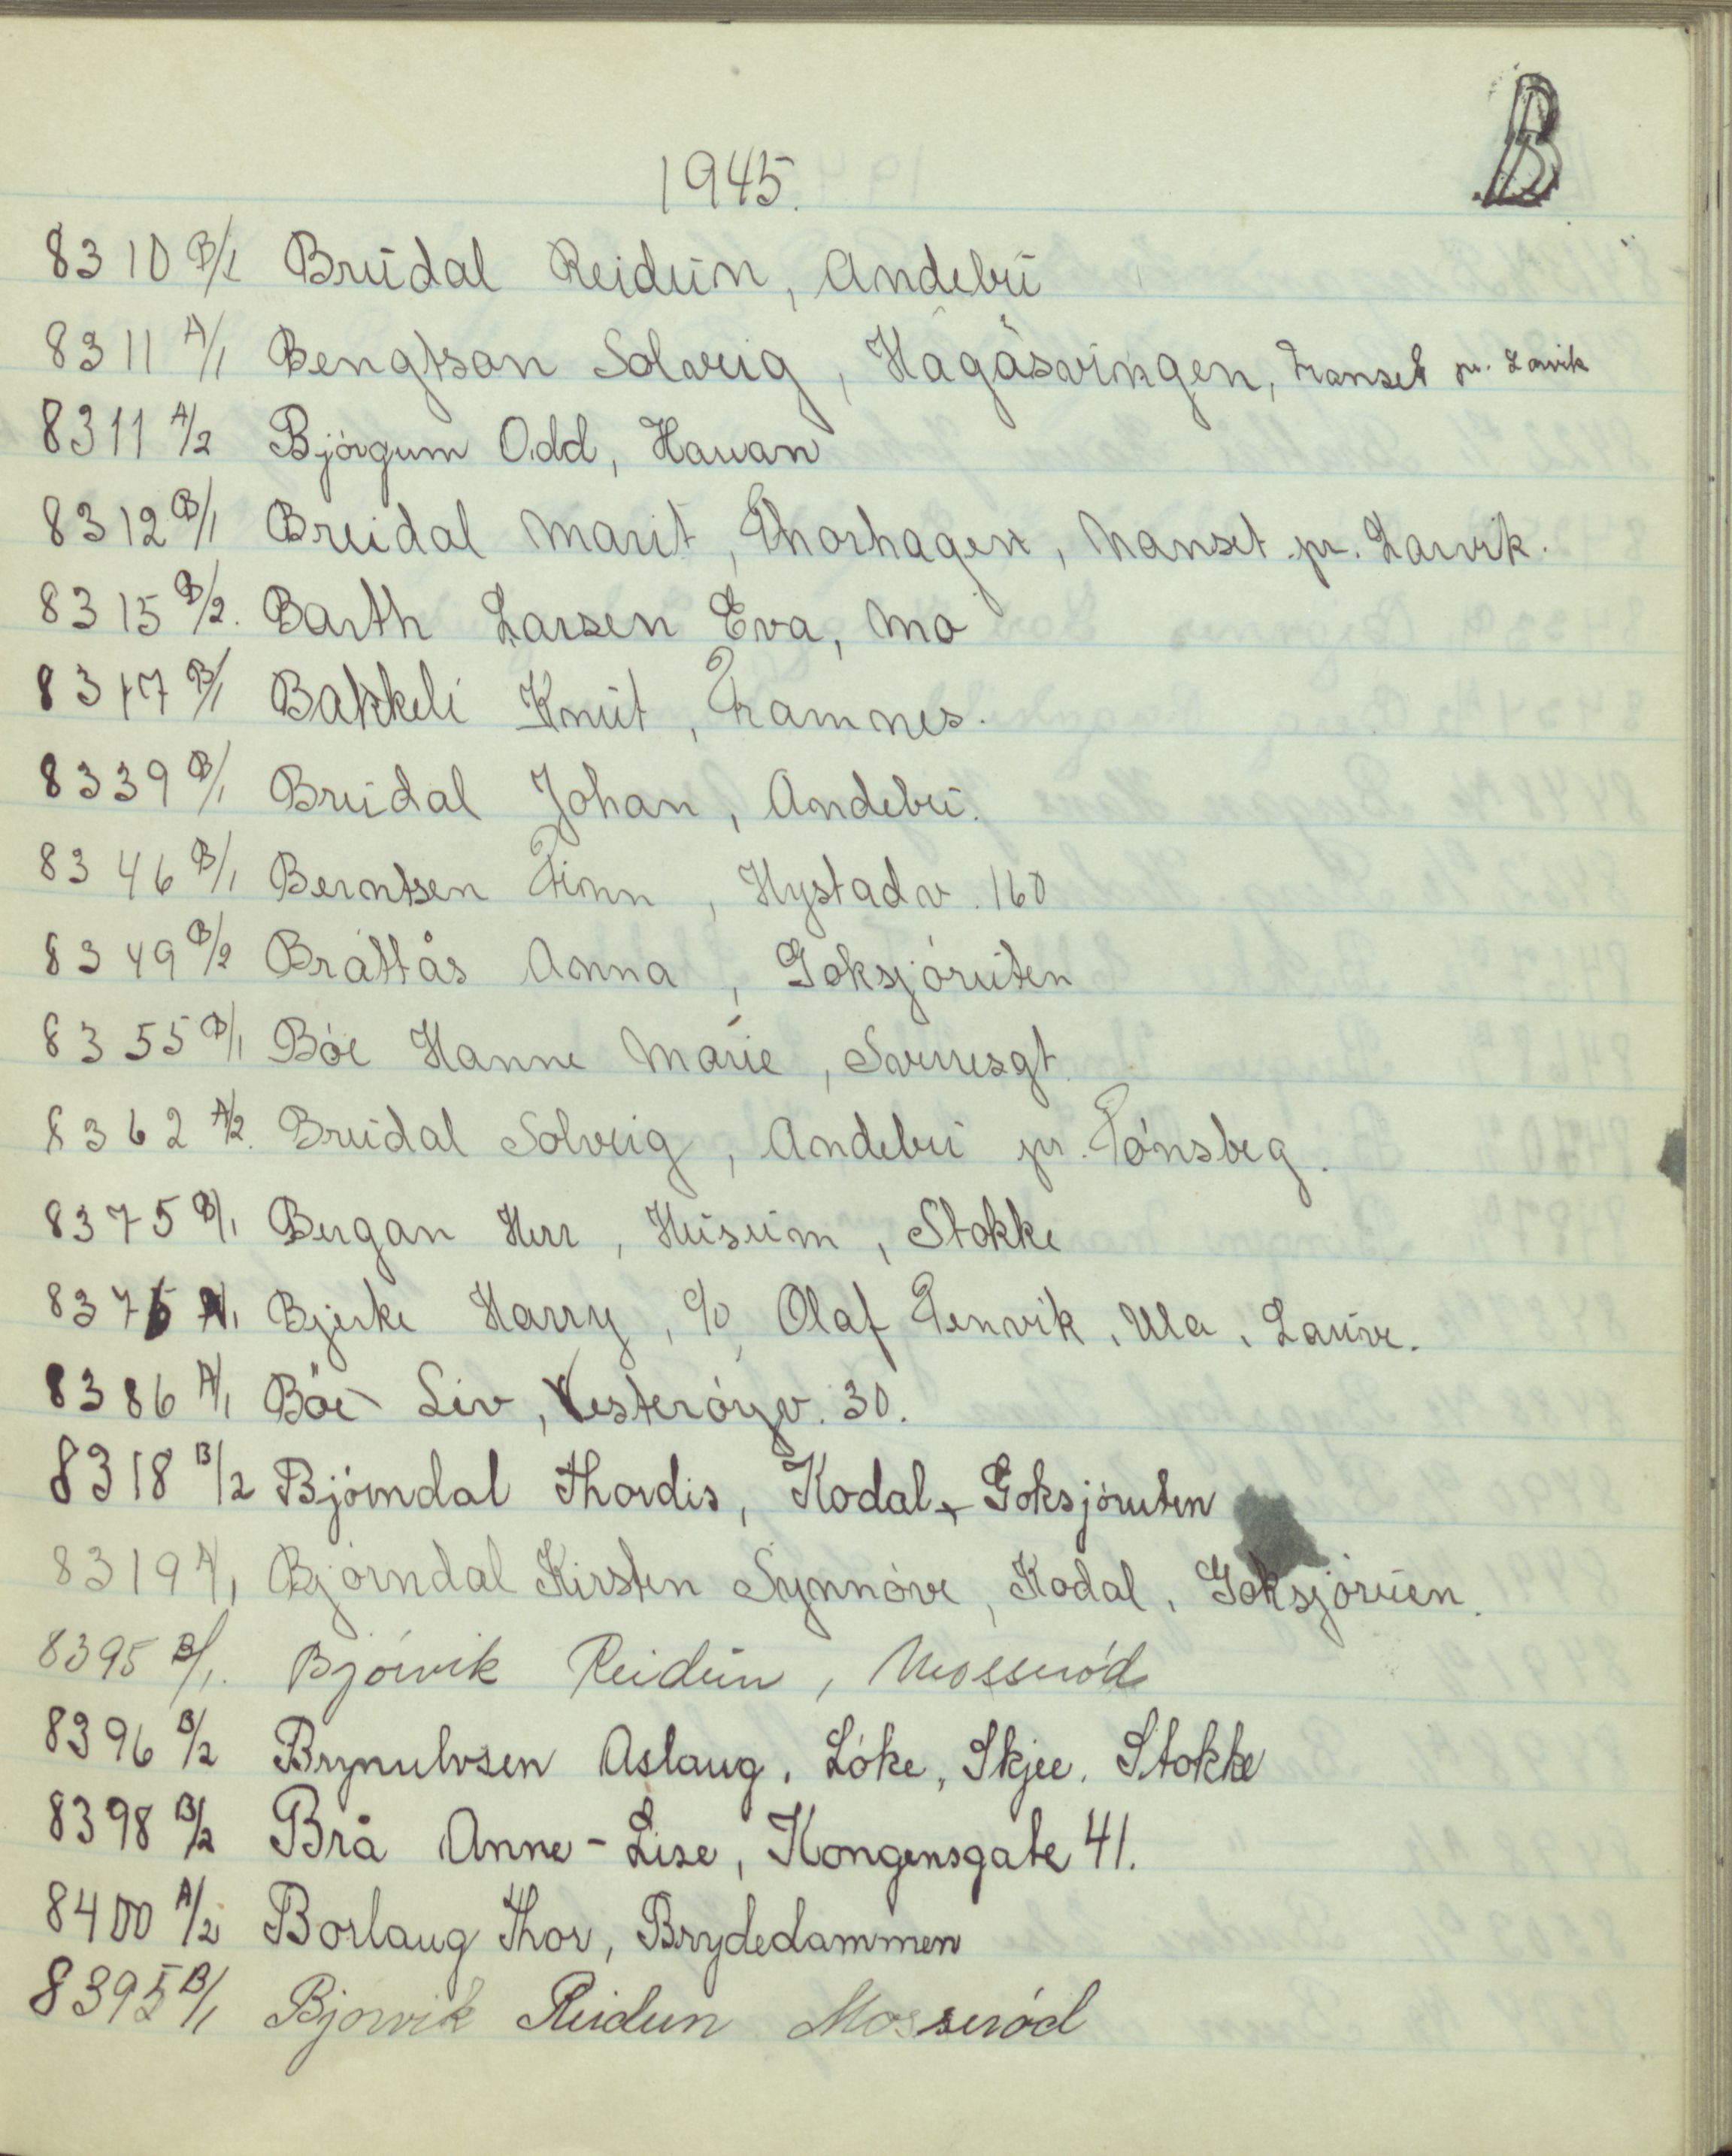 B
1945.
8310 B/1 Brudal Reidun, Andebu
8311 A/1 Bengtson Solveig, Hagåsvingen, Nanset pr. Larvik
8311 A/2 Bjørgum Odd, Hauan
8312 B/1 Breidal Marit, Thorhagen, Nanset pr. Larvik.
8315 B/2. Barth Larsen Eva, Mo
8317 B/1 Bakkeli Knut, Ramnes.
8339 B/1 Brudal Johan, Andebu.
8346 B/1 Berntsen Finn, Hystadv. 160
8349 B/2 Bråttås Anna, Goksjøruten
8355 B/1 Bøe Hanne Marie, Sverresgt.
8362 A/2. Brudal Solveig, Andebu pr. Tønsbeg.
8375 B/1 Bergan Herr, Husum, Stokke
8376 A/1 Bjerke Harry, c/o Olaf Tenvik, Ula, Laurve.
8386 A/1 Bøe Liv, Vesterøyv. 30.
8318 B/2 Bjørndal Thordis, Kodal, Goksjøruten
8319 A/1 Bjørndal Kirsten Synnøve, Kodal, Goksjøruen.
8395 B/1. Bjørvik Reidun, Mosserød
8396 B/2 Brynulvsen Aslaug, Løke, Skjee, Stokke
8398 B/2 Brå Anne-Lise, Kongensgate 41.
8400 A/2 Borlaug Thor, Brydedammen
8395 B/1 Bjørvik Reidun Mosserød